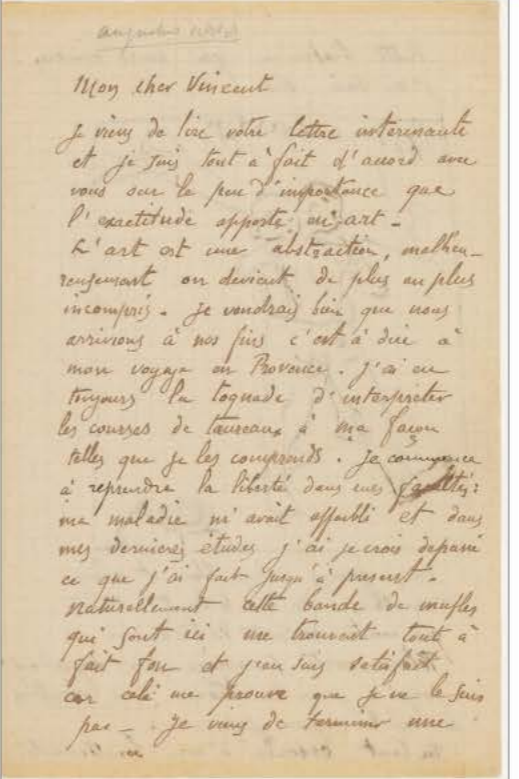 Mon cher Vincent
Je viens de lire votre lettre intéressante
et je suis tout à fait d'accord avec
vous sur le peu d'importance que
l'exactitude apporte en art -
L'art est une abstraction, malheu-
reusement on devient de plus en plus
incompris. Je voudrais bien que nous
arrivions à nos fins c'est à dire à
mon voyage en Provence. J'ai eu
toujours la toquade d'interpréter
les courses de taureaux à ma façon
telles que je les comprends. Je commence
à reprendre la liberté dans mes facultés:
ma maladie m'avait affaibli et dans
mes dernières études j'ai je crois dépassé
ce que j'ai fait jusqu'à présent.
Naturellement cette bande de mufles
qui sont ici me trouvait tout à
fait fou et j'en suis satisfait
car celà me prouve que je ne le suis
pas - Je viens de terminer une